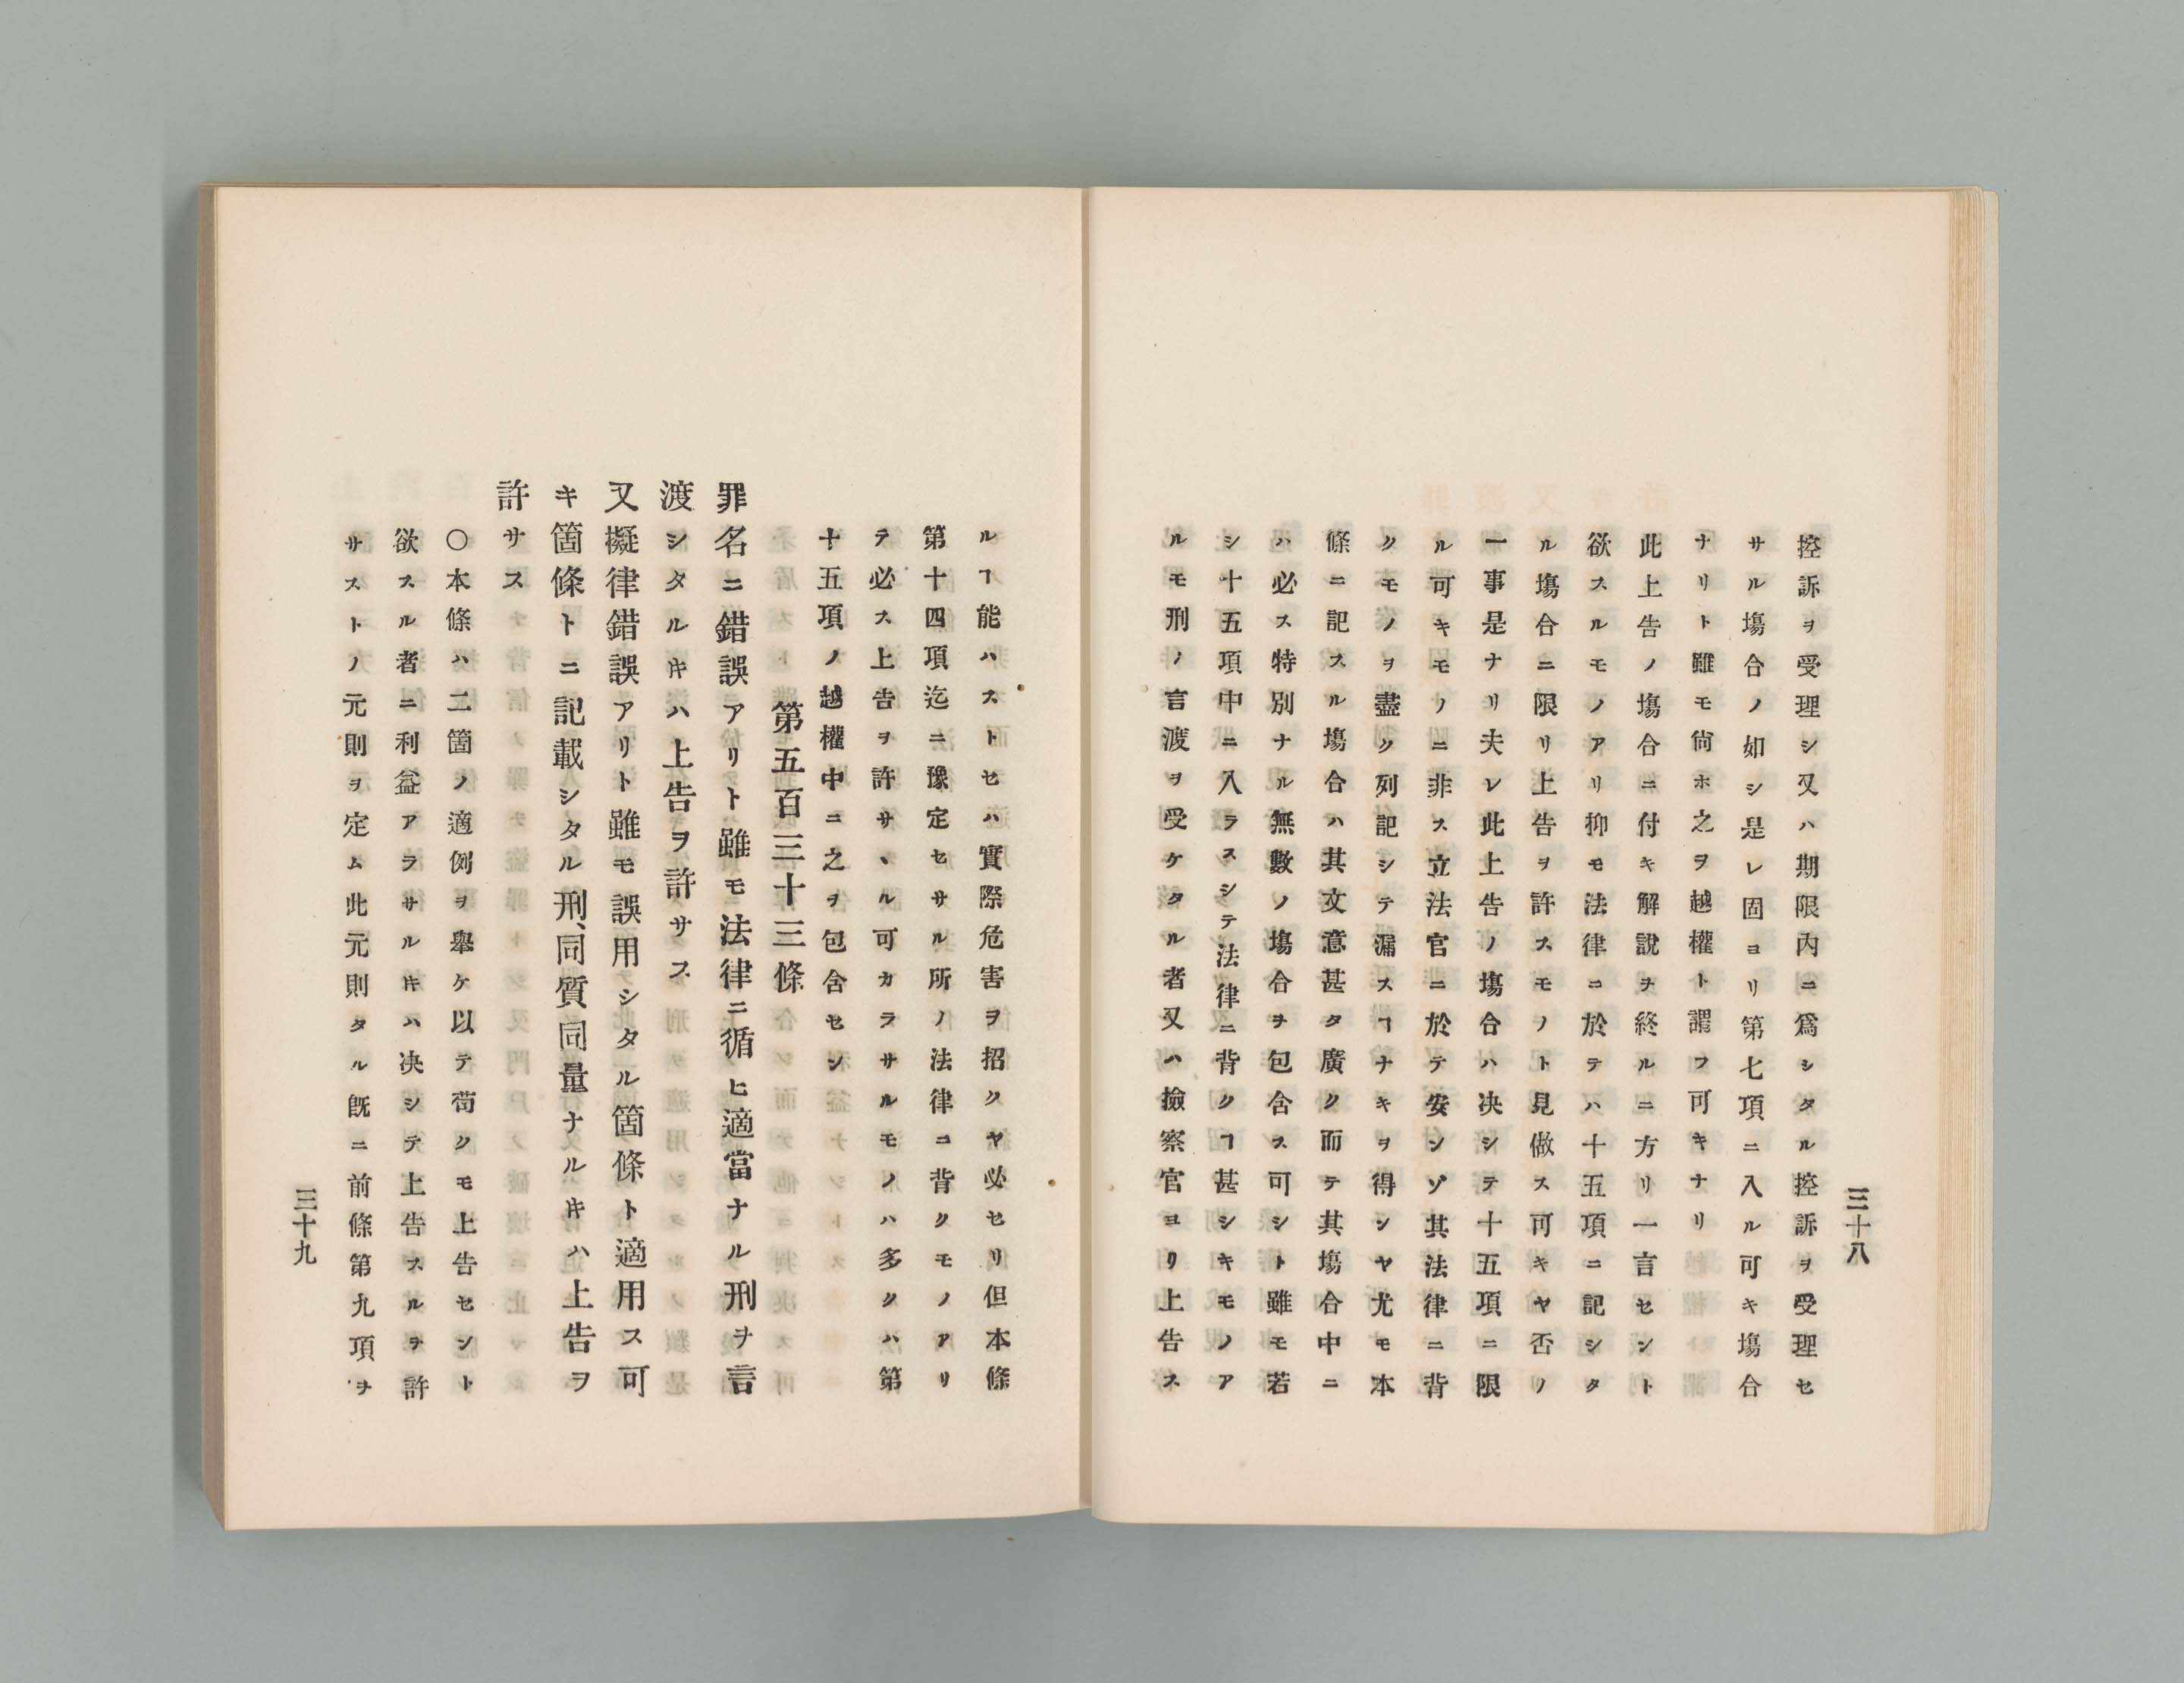 三十八
控訴ヲ受理シ又ハ期限内ニ爲シタル控訴ヲ受理セ
サル塲合ノ如シ是レ固ヨリ第七項ニ入ル可キ塲合
ナリト雖モ尙ホ之ヲ越權ト謂フ可キナリ
此上告ノ塲合ニ付キ解說ヲ終ルニ方リ一言セント
欲スルモノアリ抑モ法律ニ於テハ十五項ニ記シタ
ル塲合ニ限リ上告ヲ許スモノト見做ス可キヤ否ノ
一事是ナリ夫レ此上告ノ塲合ハ决シテ十五項ニ限
ル可キモノニ非ス立法官ニ於テ安ンソ其法律ニ背
クモノヲ盡ク列記シテ漏スヿナキヲ得ンヤ尤モ本
條ニ記スル塲合ハ其文意甚タ廣ク而テ其塲合中ニ
ハ必ス特別ナル無數ノ塲合ヲ包含ス可シト雖モ若
シ十五項中ニ入ラスシテ法律ニ背クヿ甚シキモノア
ルモ刑ノ言渡ヲ受ケタル者又ハ撿察官ヨリ上告ス
ルヿ能ハストセハ實際危害ヲ招クヤ必セリ但本條
第十四項迄ニ豫定セサル所ノ法律ニ背クモノアリ
テ必ス上告ヲ許サヽル可カラサルモノハ多クハ第
十五項ノ越權中ニ之ヲ包含セシ
第五百三十三條
罪名ニ錯誤アリト雖モ法律ニ循ヒ適當ナル刑ヲ言
渡シタルキハ上告ヲ許サス
又擬律錯誤アリト雖モ誤用シタル箇條ト適用ス可
キ箇條トニ記載シタル刑、同質同量ナルキハ上告ヲ
許サス
〇本條ハ二箇ノ適例ヲ舉ケ以テ苟クモ上告セント
欲スル者ニ利益アラサルキハ决シテ上告スルヲ許
サストノ元則ヲ定ム此元則タル旣ニ前條第九項ヲ
三十九